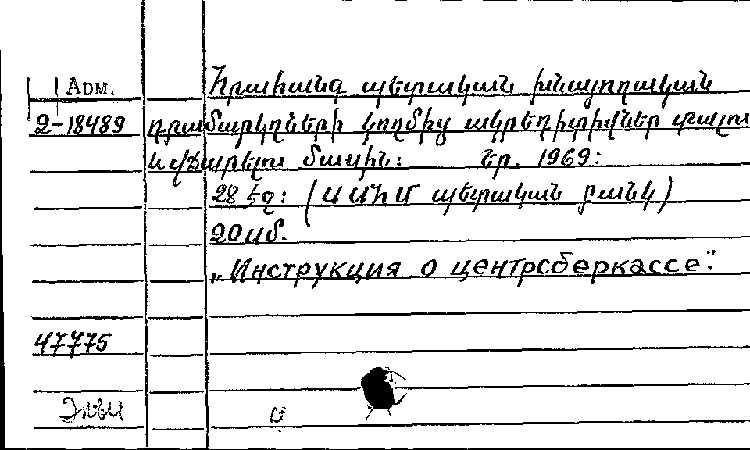 Adm.
Հրահանգ պետական խնայողական
2-18489 դրամարկղների կողմից ակրեդիտիվներ տալու
և վճարելու մասին: Եր. 1969:
28 էջ: (ՍՍՀՄ պետական բանկ)
20 սմ.
„Инструкция о центрсберкассе":
47775